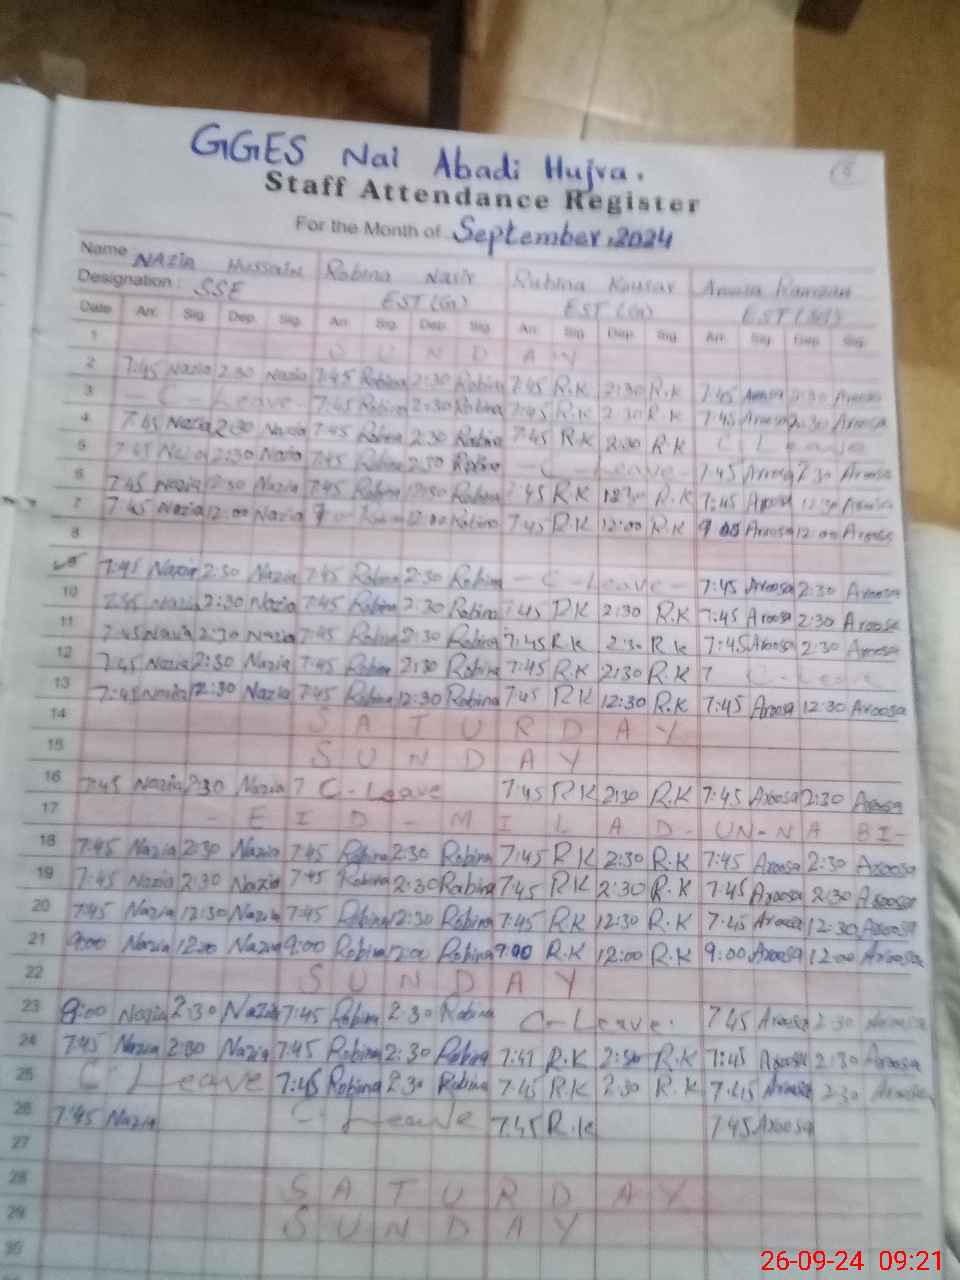 GGES Nai Abadi Hujra.
Staff Attendance Register
For the Month of September, 2024
Name NAZIA Hussain Robina Nasir Rubina Kousar
Designation: SSE EST (Gn) EST (Gn)
Date Arr. Sig. Dep. Sig. Arr. Sig. Dep. Sig. Arr. Sig. Dep. Sig. Arr. Sig. Dep. Sig.
1 S U N D A Y
2 7:45 Nazia 2:30 Nazia 7:45 Robina 2:30 Robina 7:45 R.K 2:30 R.K 7:45 Aroosa 2:30 Aroosa
3 - C - Leave - 7:45 Robina 2:30 Robina 7:45 R.K 2:30 R.K 7:45 Aroosa 2:30 Aroosa
4 7:45 Nazia 2:30 Nazia 7:45 Robina 2:30 Robina 7:45 R.K 2:30 R.K C Leave
5 7:45 Nazia 2:30 Nazia 7:45 Robina 2:30 Robina - C - Leave - 7:45 Aroosa 2:30 Aroosa
6 7:45 Nazia 2:30 Nazia 7:45 Robina 12:30 Robina 7:45 R.K R.K 7:45 Aroosa 12:30 Aroosa
7 7:45 Nazia 12:00 Nazia Robina 12:00 Robina 7:45 R.K 12:00 R.K 9:00 Aroosa 12:00 Aroosa
8
9 7:45 Nazia 2:30 Nazia 7:45 Robina 2:30 Robina - C - Leave - 7:45 Aroosa 2:30 Aroosa
10 7:45 Nazia 2:30 Nazia 7:45 Robina 2:30 Robina 7:45 R.K 2:30 R.K 7:45 Aroosa 2:30 Aroosa
11 7:45 Nazia 2:30 Nazia 7:45 Robina 2:30 Robina 7:45 R.K 2:30 R.K 7:45 Aroosa 2:30 Aroosa
12 7:45 Nazia 2:30 Nazia 7:45 Robina 2:30 Robina 7:45 R.K 2:30 R.K 7 C-Leave
13 7:45 Nazia 12:30 Nazia 7:45 Robina 12:30 Robina 7:45 R.K 12:30 R.K 7:45 Aroosa 12:30 Aroosa
14 S A T U R D A Y
15 S U N D A Y
16 7:45 Nazia 2:30 Nazia 7 C-Leave 7:45 R.K 2:30 R.K 7:45 Aroosa 2:30 Aroosa
17 - E I D - M I L A D - UN - N A BI -
18 7:45 Nazia 2:30 Nazia 7:45 Robina 2:30 Robina 7:45 R.K 2:30 R.K 7:45 Aroosa 2:30 Aroosa
19 7:45 Nazia 2:30 Nazia 7:45 Robina 2:30 Robina 7:45 R.K 2:30 R.K 7:45 Aroosa 2:30 Aroosa
20 7:45 Nazia 12:30 Nazia 7:45 Robina 12:30 Robina 7:45 R.K 12:30 R.K 7:45 Aroosa 12:30 Aroosa
21 9:00 Nazia 12:00 Nazia 9:00 Robina 12:00 Robina 9:00 R.K 12:00 R.K 9:00 Aroosa 12:00 Aroosa
22 S U N D A Y
23 9:00 Nazia 2:30 Nazia 7:45 Robina 2:30 Robina C-Leave. 7:45 Aroosa 2:30 Aroosa
24 7:45 Nazia 2:30 Nazia 7:45 Robina 2:30 Robina R.K 2:30 R.K 7:45 Aroosa 2:30 Aroosa
25 C - Leave 7:45 Robina 2:30 Robina 7:45 R.K 2:30 R.K 7:45 Aroosa 2:30 Aroosa
26 7:45 Nazia C - Leave 7:45 R.K 7:45 Aroosa
27
28 S A T U R D A Y
29 S U N D A Y
30
26-09-24 09:21